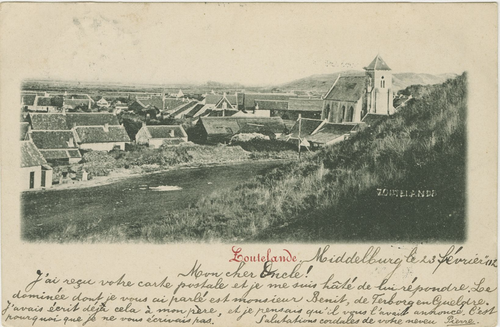 ZOUTELANDE
Zoutelande. Middelburg le 23 février '02
Mon cher Oncle!
J'ai reçu votre carte postale et je me suis hâté de lui répondre. Le
dominée dont je vous ai parlé est monsieur Benit, de Terborg en Gueldre.
J'avais écrit déjà cela à mon père, et je pensais qu'il vous l'avait annoncé. C'est
pourquoi que je ne vous écrivais pas. Salutations cordiales de votre neveu Pierre